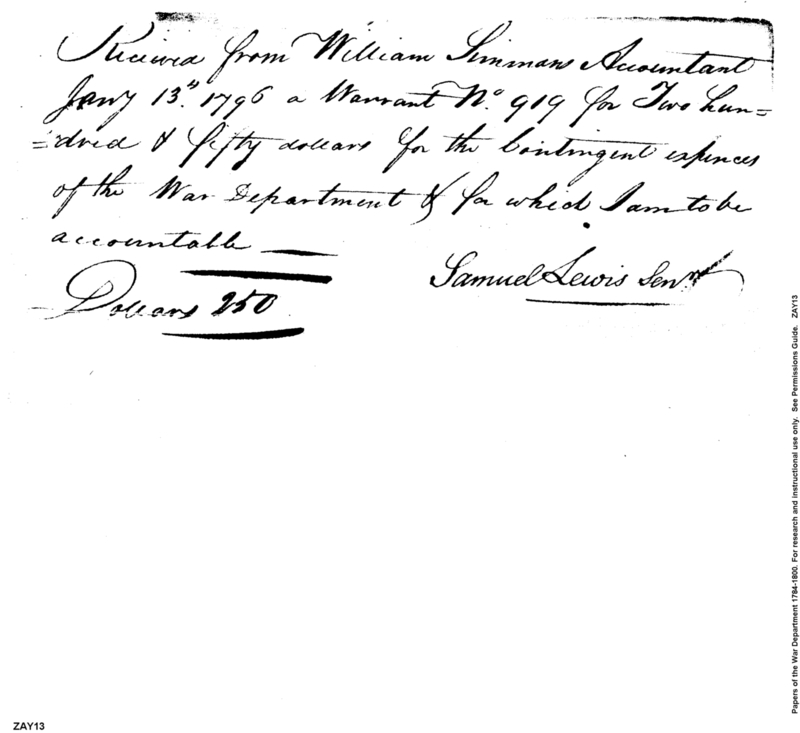 Received from William Simmons Accountant
Jany 13th. 1796 a Warrant No. 919 for Two hun=
=dred & fifty dollars for the Contingent expences
of the War Department & for which I am to be
accountable
Samuel Lewis Senr
Dollars 250
Papers of the War Department 1784-1800. For research and instructional use only. See Permissions Guide. ZAY13
ZAY13